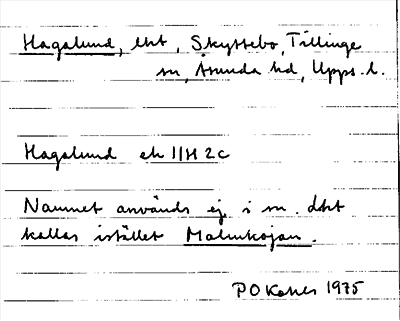 Hagalund, lht, Skyttebo, Tillinge
sn, Åsunda hd, Upps. l.
Hagalund ek 11H 2c
Namnet används ej i sn. Lht
kallas istället Malmkojan.
P O 1975